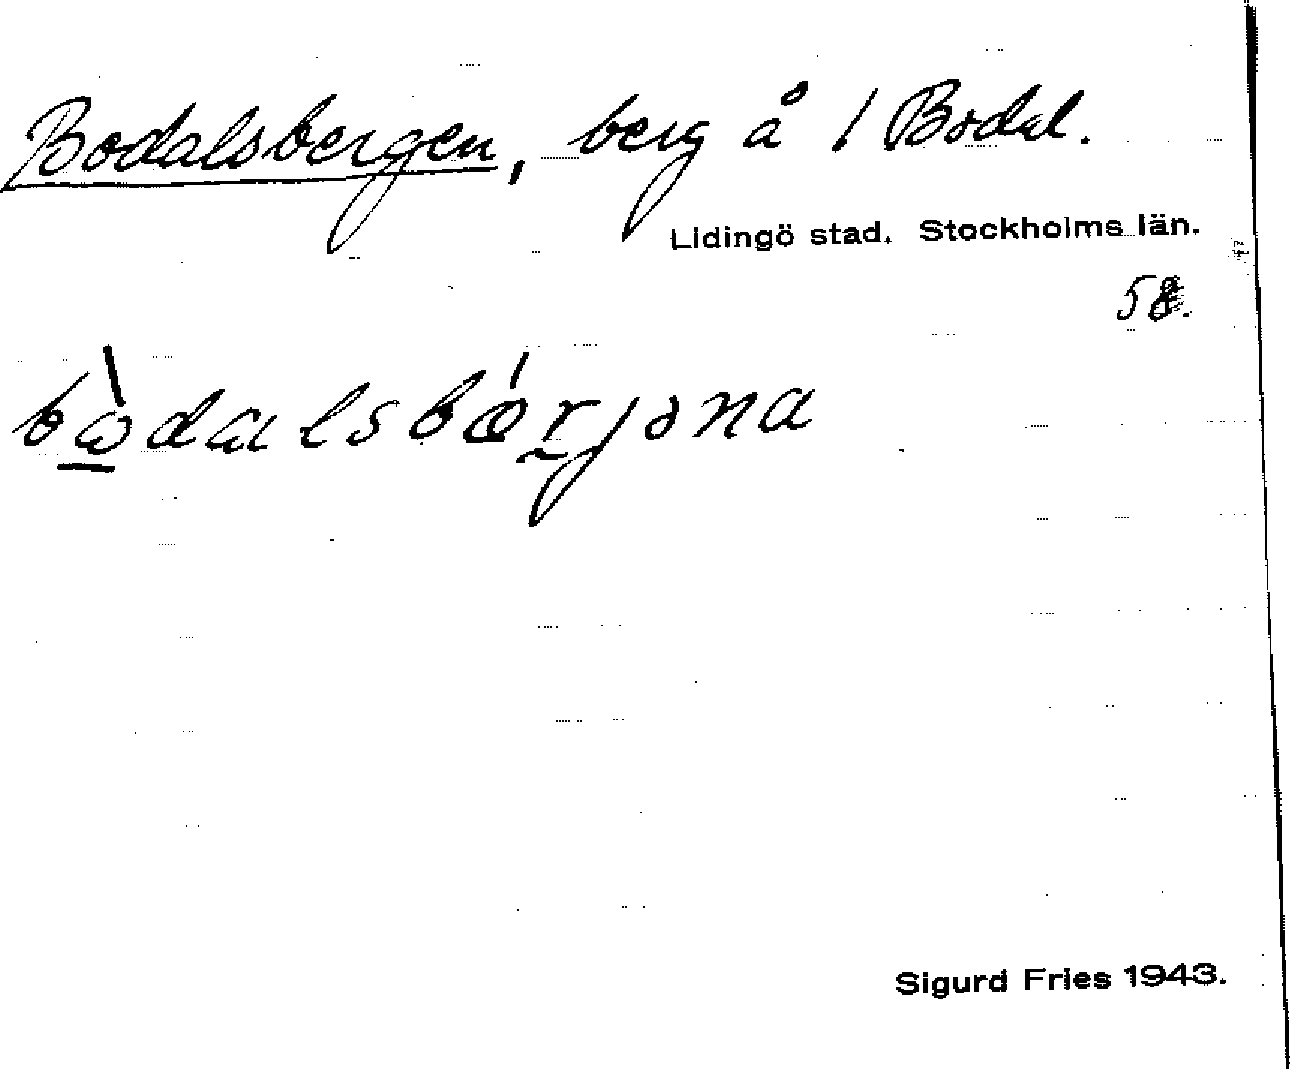 Bodalsbergen, berg å 1 Bodal.
Lidingö stad. Stockholms län.
bὼ̲dalsbǽrjəna
Sigurd Fries 1943.